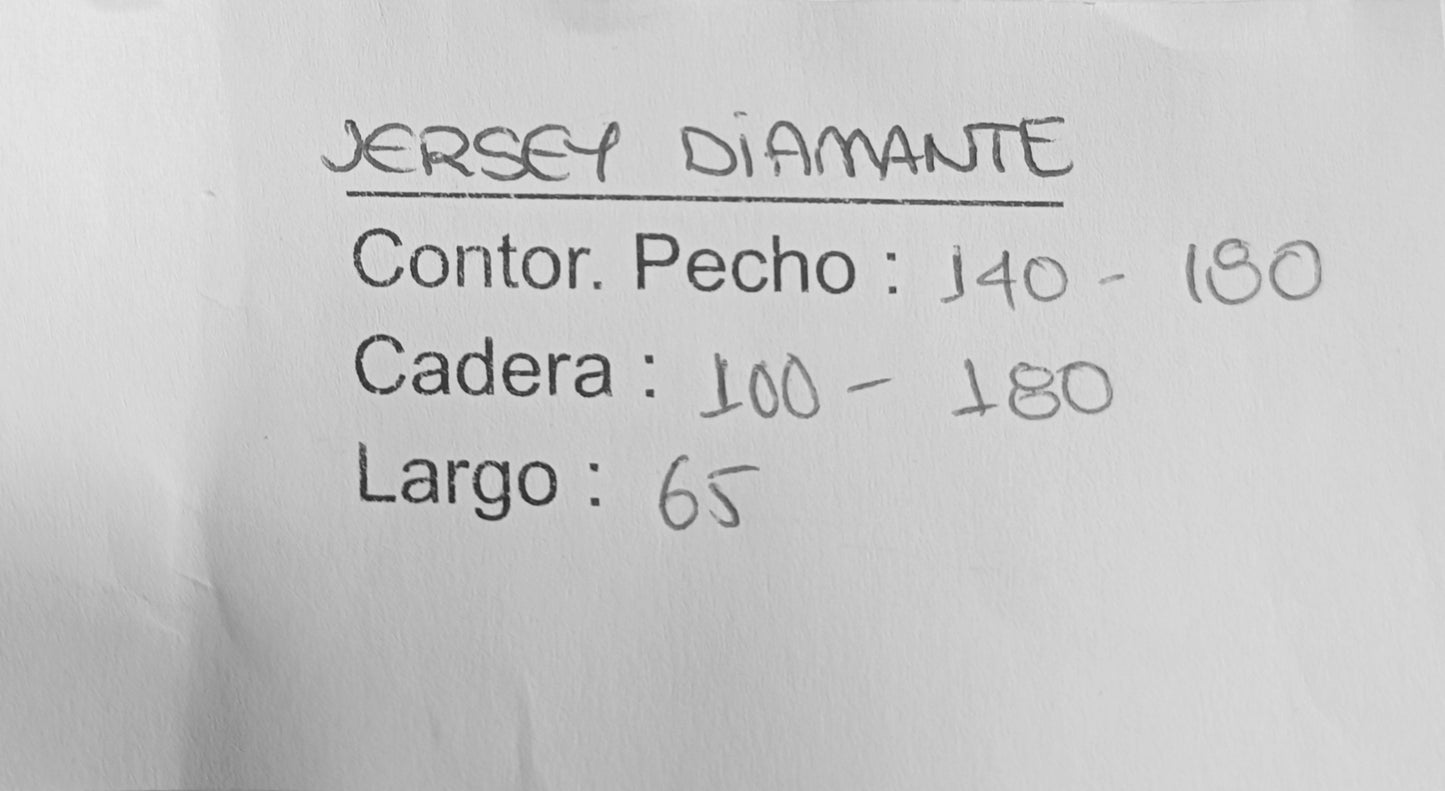 JERSEY DiAMANTE
Contor. Pecho : 140 - 180
Cadera : 100 - 180
Largo : 65